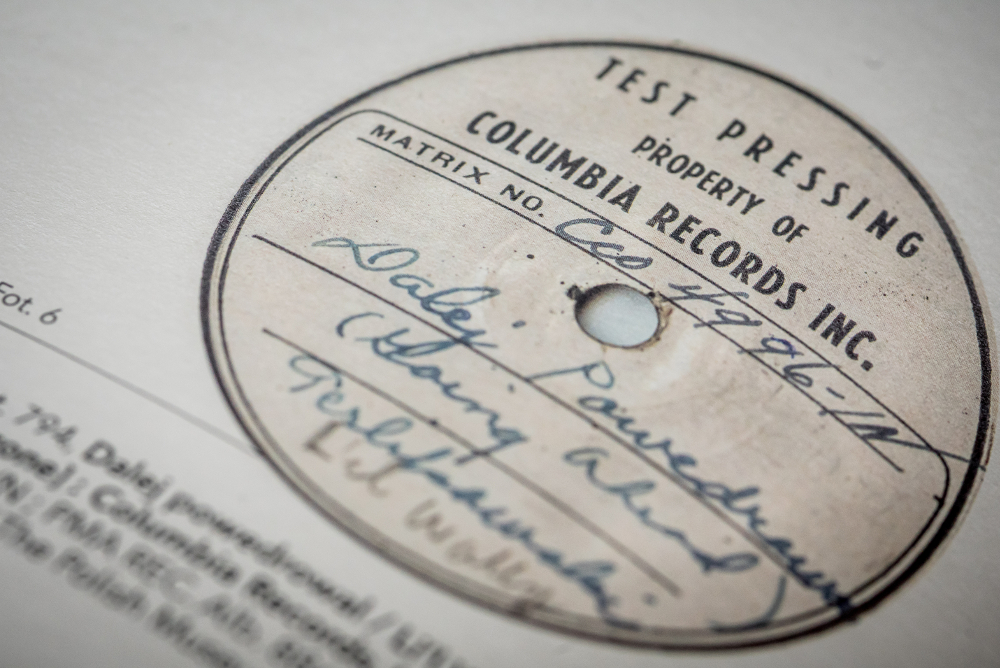 TEST PRESSING
PROPERTY OF
COLUMBIA RECORDS INC.
MATRIX NO. CCO 4996-1N
Dalej Powedrowal
(Going Ahead)
Li'l Wally
Fot. 6
794, Dalej powędrował /
Columbia Records,
The Polish